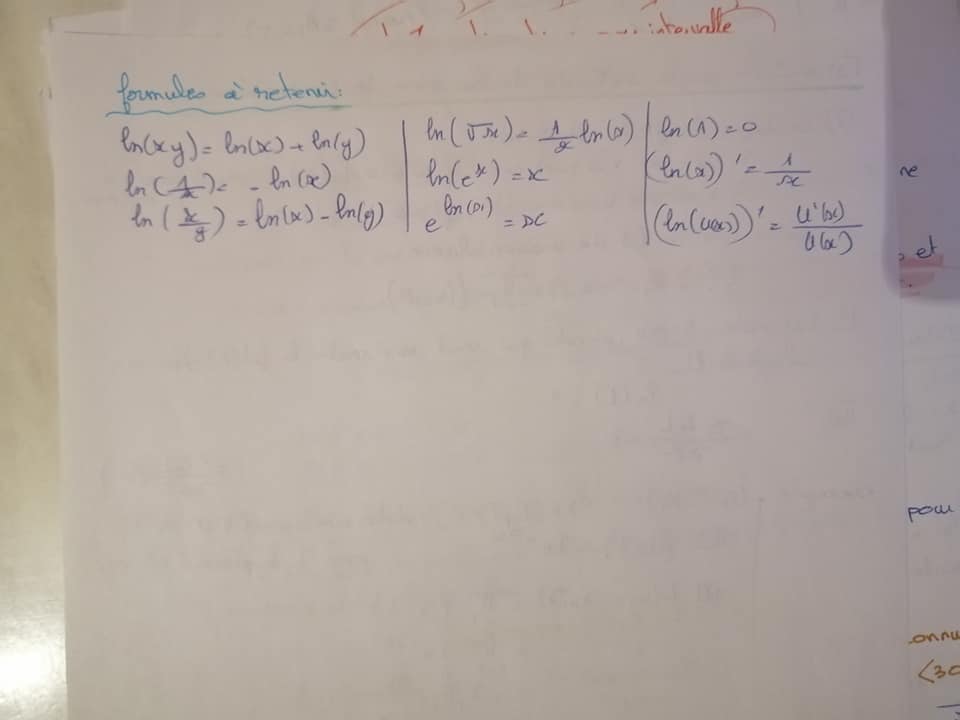 intervalle
formules à retenir:
ln(xy) = ln(x) + ln(y)
ln(1/x) = - ln(x)
ln(x/y) = ln(x) - ln(y)
ln(√x) = 1/2 ln(x)
ln(e^x) = x
e^ln(x) = x
ln(1) = 0
(ln(x))' = 1/x
(ln(u(x)))' = u'(x)/u(x)
ne
et
pour
(30